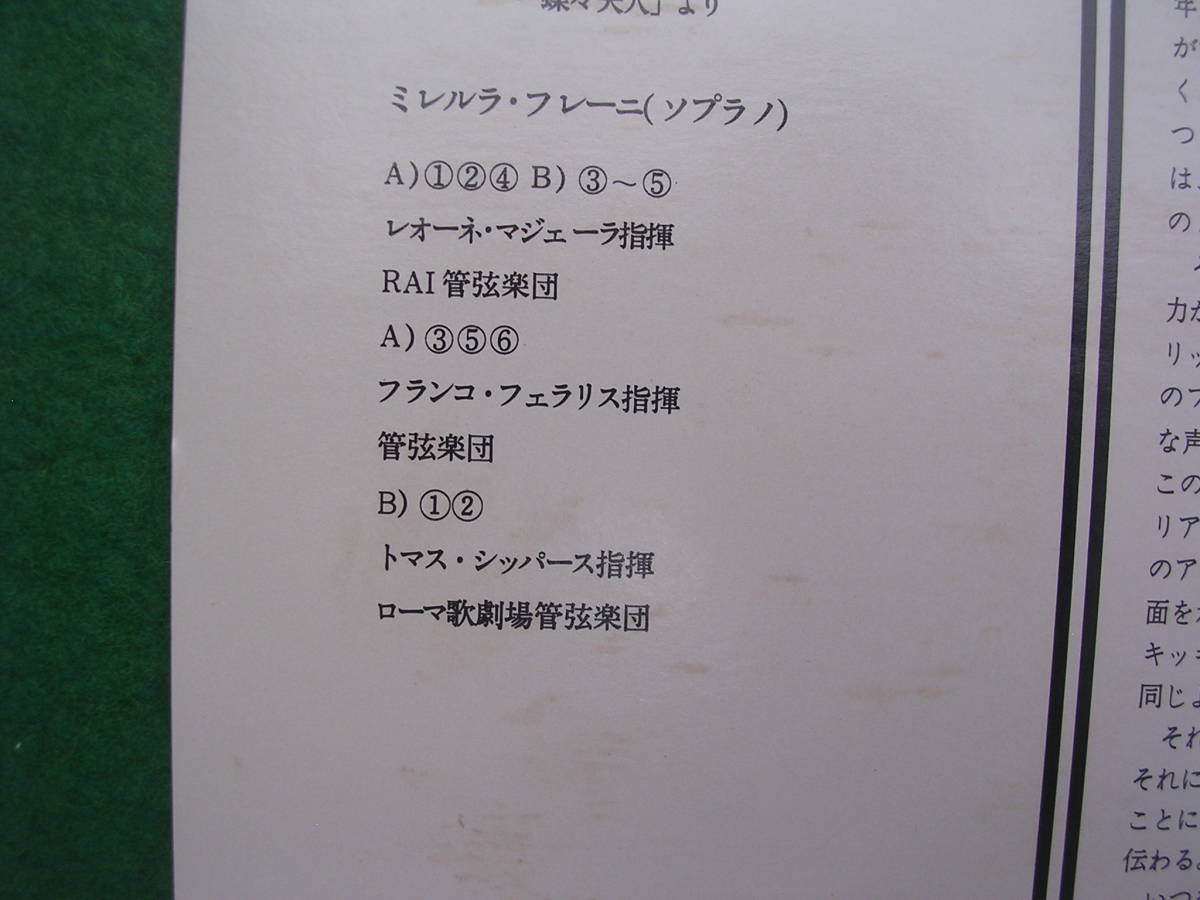 蝶々夫人」より
ミレルラ・フレーニ(ソプラノ)
A)①②④ B)③～⑤
レオーネ・マジェーラ指揮
RAI管弦楽団
A)③⑤⑥
フランコ・フェラリス指揮
管弦楽団
B)①②
トマス・シッパース指揮
ローマ歌劇場管弦楽団
年
が
く
つ
は、
の
力が
リッ
のフ
な声
この
リア
のア
面を
キッ
同じよ
それ
それに
ことに
伝わる